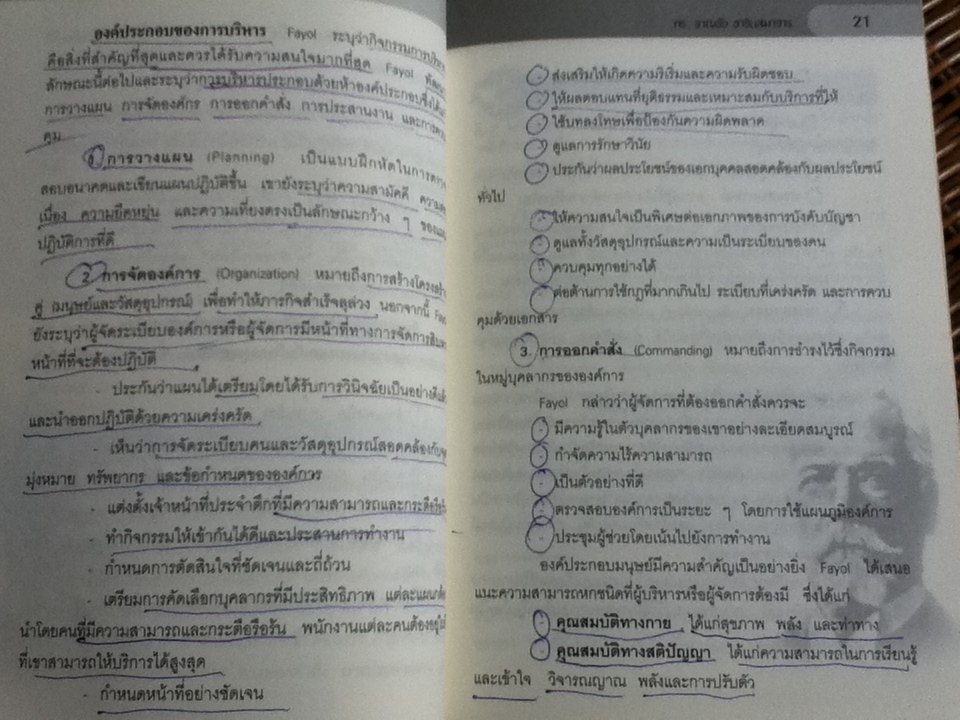 องค์ประกอบของการบริหาร Fayol ระบุว่ากิจกรรมการบริหาร
คือสิ่งที่สำคัญที่สุดและควรได้รับความสนใจมากที่สุด Fayol
ลักษณะนี้ต่อไปและระบุว่าการบริหารประกอบด้วยห้าองค์ประกอบซึ่งได้แก่
การวางแผน การจัดองค์กร การออกคำสั่ง การประสานงาน และการควบ
คุม
1. การวางแผน (Planning) เป็นแบบฝึกหัดในการตรวจ
สอบอนาคตและเขียนแผนปฏิบัติขึ้น เขายังระบุว่าความสามัคคี ความต่อ
เนื่อง ความยืดหยุ่น และความเที่ยงตรงเป็นลักษณะกว้าง ๆ ของแผน
ปฏิบัติการที่ดี
2. การจัดองค์การ (Organization) หมายถึงการสร้างโครงสร้าง
คู่ (มนุษย์และวัสดุอุปกรณ์) เพื่อทำให้ภารกิจสำเร็จลุล่วง นอกจากนี้ Fayol
ยังระบุว่าผู้จัดระเบียบองค์การหรือผู้จัดการมีหน้าที่ทางการจัดการสิบหก
หน้าที่ที่จะต้องปฏิบัติ
- ประกันว่าแผนได้เตรียมโดยได้รับการวินิจฉัยเป็นอย่างดีแล้ว
และนำออกปฏิบัติด้วยความเคร่งครัด
- เห็นว่าการจัดระเบียบคนและวัสดุอุปกรณ์สอดคล้องกับจุด
มุ่งหมาย ทรัพยากร และข้อกำหนดขององค์การ
- แต่งตั้งเจ้าหน้าที่ประจำตึกที่มีความสามารถและกระตือรือร้น
- ทำกิจกรรมให้เข้ากันได้ดีและประสานการทำงาน
- กำหนดการตัดสินใจที่ชัดเจนและถี่ถ้วน
- เตรียมการคัดเลือกบุคลากรที่มีประสิทธิภาพ แต่ละแผนก
นำโดยคนที่มีความสามารถและกระตือรือร้น พนักงานแต่ละคนต้องอยู่ในที่
ที่เขาสามารถให้บริการได้สูงสุด
- กำหนดหน้าที่อย่างชัดเจน
21
- ส่งเสริมให้เกิดความริเริ่มและความรับผิดชอบ
- ให้ผลตอบแทนที่ยุติธรรมและเหมาะสมกับบริการที่ให้
- ใช้บทลงโทษเพื่อป้องกันความผิดพลาด
- ดูแลการรักษาวินัย
- ประกันว่าผลประโยชน์ของเอกบุคคลสอดคล้องกับผลประโยชน์
ทั่วไป
- ให้ความสนใจเป็นพิเศษต่อเอกภาพของการบังคับบัญชา
- ดูแลทั้งวัสดุอุปกรณ์และความเป็นระเบียบของคน
- ควบคุมทุกอย่างได้
- ต่อต้านการใช้กฎที่มากเกินไป ระเบียบที่เคร่งครัด และการควบ
คุมด้วยเอกสาร
3. การออกคำสั่ง (Commanding) หมายถึงการธำรงไว้ซึ่งกิจกรรม
ในหมู่บุคลากรขององค์การ
Fayol กล่าวว่าผู้จัดการที่ต้องออกคำสั่งควรจะ
- มีความรู้ในตัวบุคลากรของเขาอย่างละเอียดสมบูรณ์
- กำจัดความไร้ความสามารถ
- เป็นตัวอย่างที่ดี
- ตรวจสอบองค์การเป็นระยะ ๆ โดยการใช้แผนภูมิองค์การ
- ประชุมผู้ช่วยโดยเน้นไปยังการทำงาน
องค์ประกอบมนุษย์มีความสำคัญเป็นอย่างยิ่ง Fayol ได้เสนอ
แนะความสามารถหกชนิดที่ผู้บริหารหรือผู้จัดการต้องมี ซึ่งได้แก่
- คุณสมบัติทางกาย ได้แก่สุขภาพ พลัง และท่าทาง
- คุณสมบัติทางสติปัญญา ได้แก่ความสามารถในการเรียนรู้
และเข้าใจ วิจารณญาณ พลังและการปรับตัว